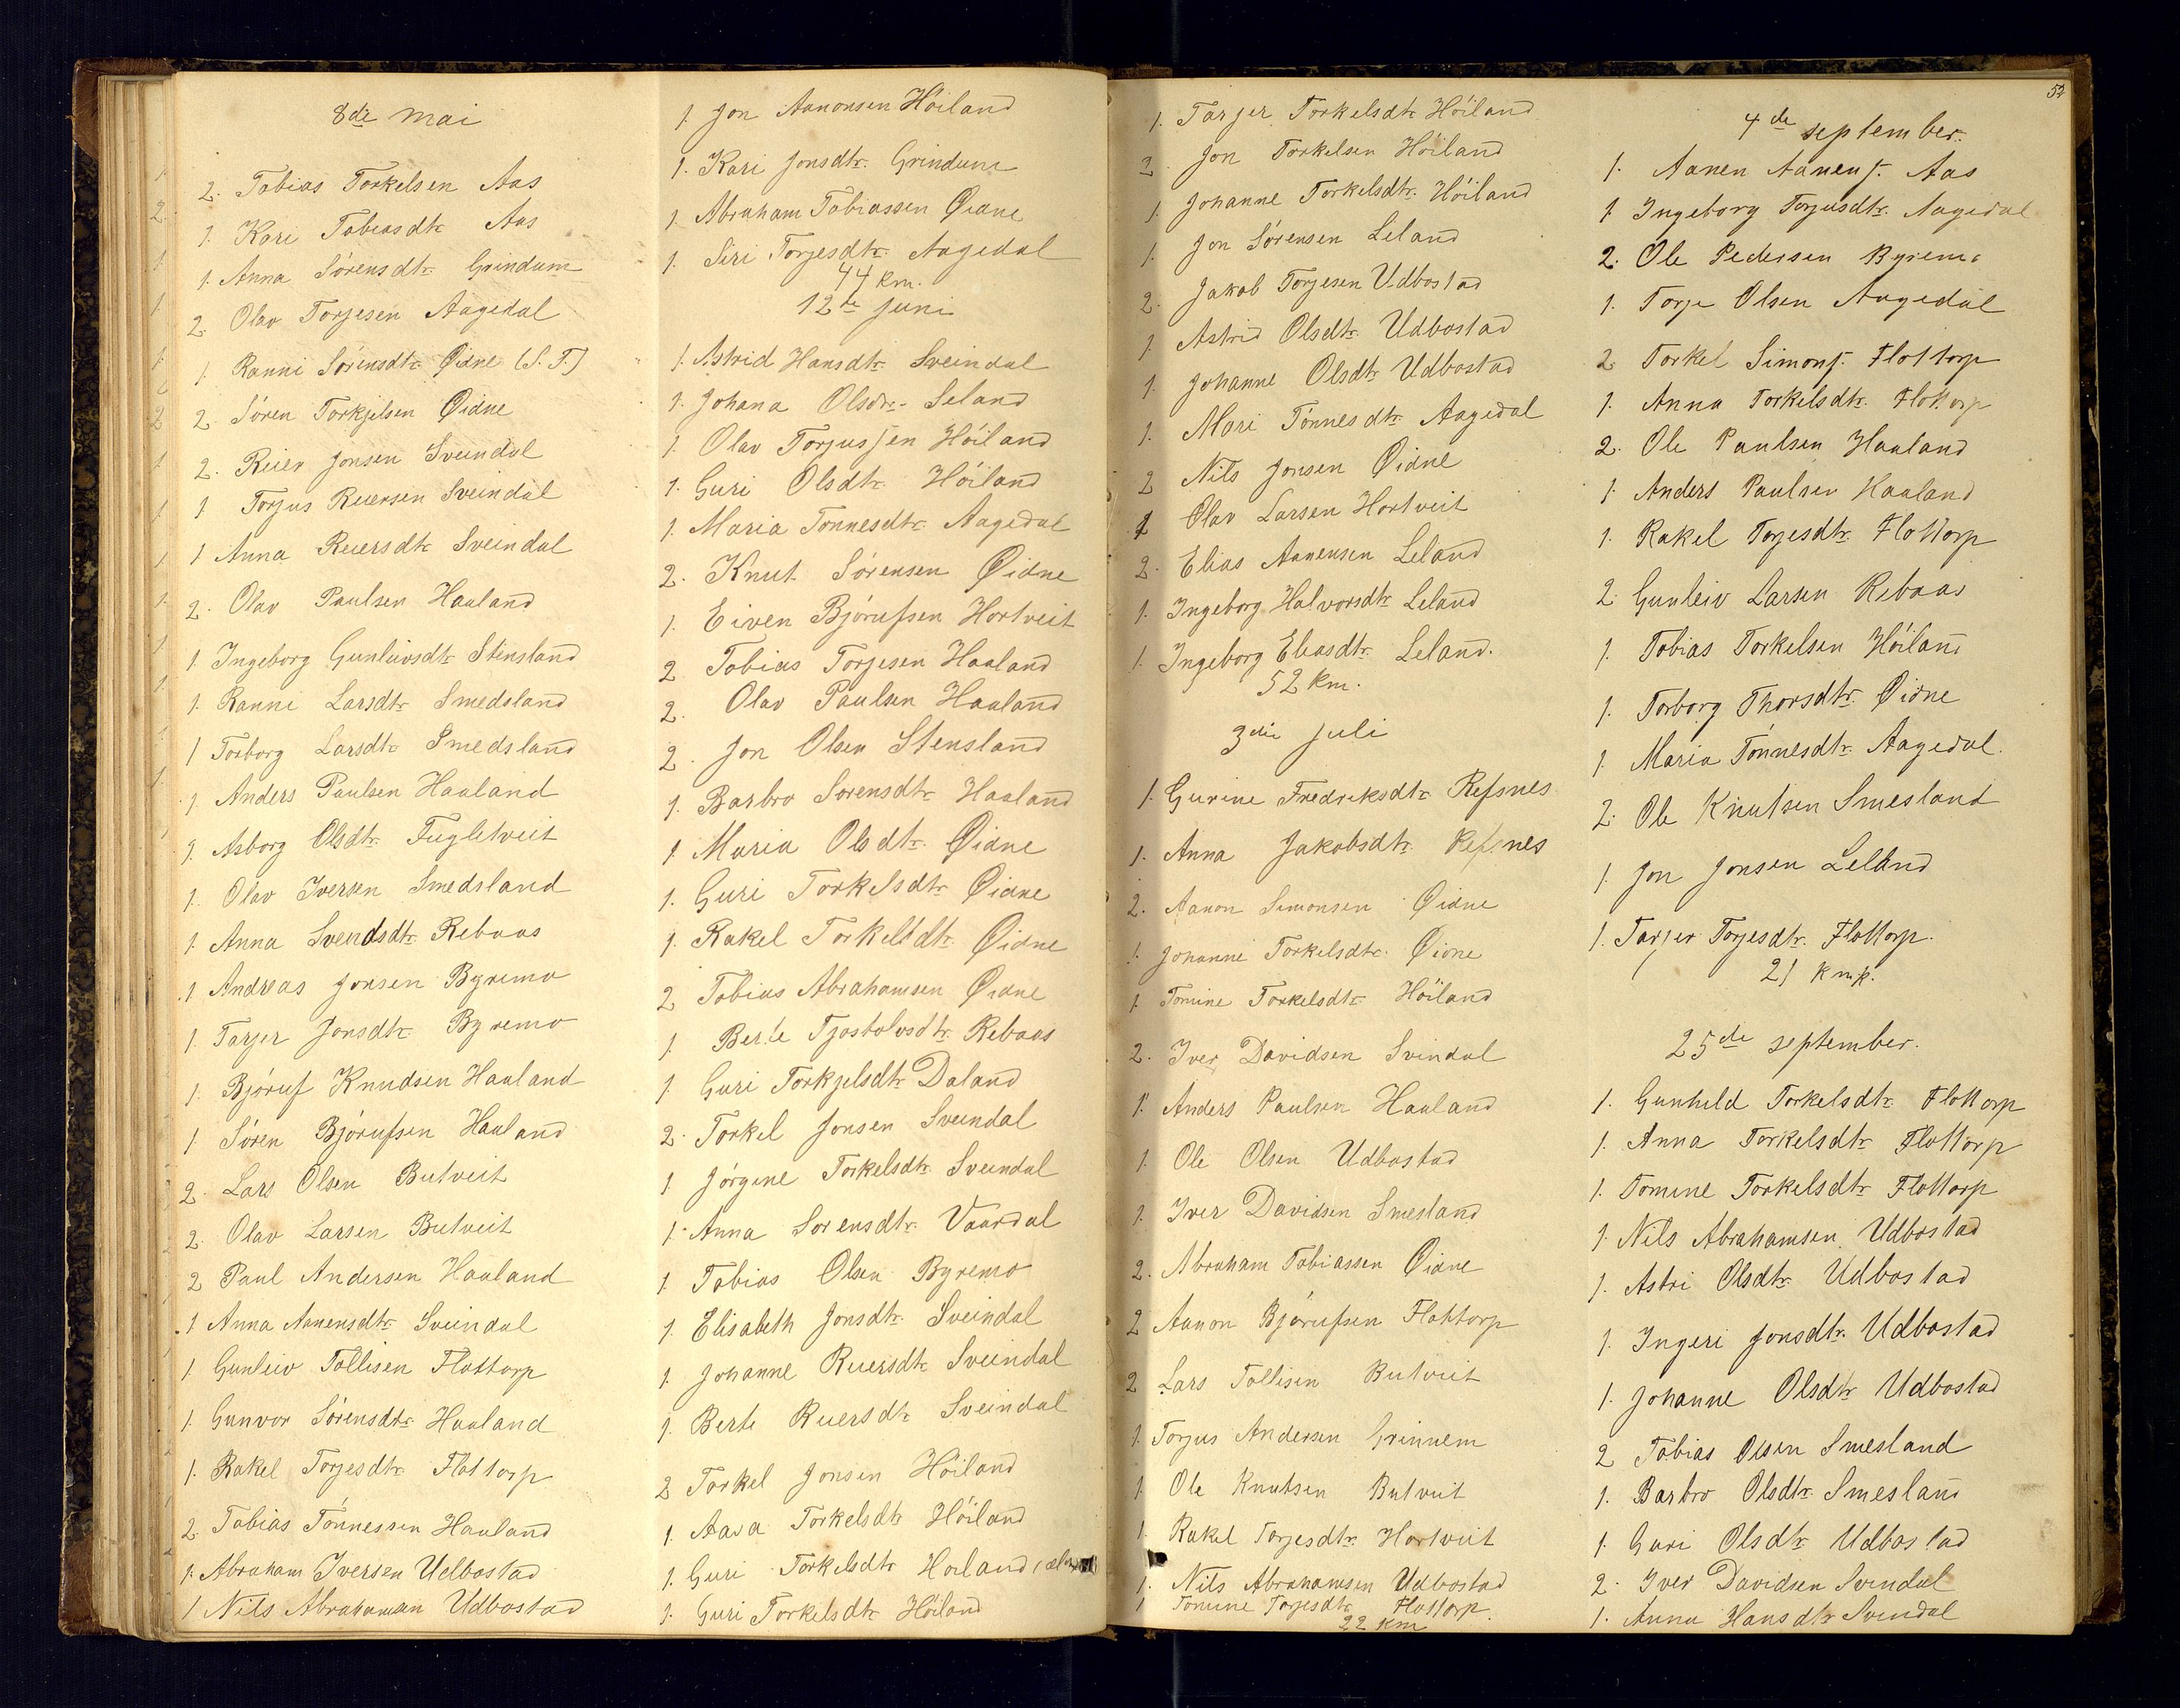 8de mai
2. Tobias Torkelsen Aas
1. Kari Tobiasdtr Aas
1. Anna Sørensdtr. Grindum
2. Olav Torjesen Aagedal
1. Ranni Sørensdtr. Øidne (S. T.)
2. Søren Torkjelsen Øidne
2. Reier Jonsen Sveindal
1 Torjus Reiersen Sveindal
1 Anna Reiersdtr Sveindal
2. Olav Paulsen Haaland
1. Ingeborg Gunleivsdtr Stensland
1. Ranni Larsdtr Smedsland
1 Torborg Larsdtr Smedsland
1. Anders Paulsen Haaland
1. Asborg Olsdtr. Fugletveit
1. Olav Iversen Smedsland
1. Anna Svendsdtr. Rebaas
1 Andreas Jonsen Byremo
1. Tarjer Jonsdtr. Byremo
1. Bjóruf Knudsen Haaland
1 Søren Bjórufsen Haaland
2. Lars Olsen Butveit
2. Olav Larsen Butveit
2 Paul Andersen Haaland
1 Anna Aanensdtr. Sveindal
1. Gunleiv Tollisen Flottorp
1. Gunvor Sørensdtr. Haaland
1. Rakel Torjesdtr. Flottorp
2. Tobias Tónnessen Haaland
1. Abraham Iversen Udbostad
1 Nils Abrahamsen Udbostad
1. Jon Aanonsen Hóiland
1. Kari Jonsdtr. Grindum
1. Abraham Tobiassen Øidne
1. Siri Torjesdtr. Aagedal
44 km.
12te juni
1. Astrid Hansdtr. Sveindal
1. Johana Olsdtr. Leland
1. Olav Torjussen Hóiland
1. Guri Olsdtr. Hóiland
1. Maria Tonnesdtr. Aagedal
2. Knut Sórensen Øidne
1. Eiven Bjórufsen Hortveit
2 Tobias Torjesen Haaland
2. Olav Paulsen Haaland
2. Jon Olsen Stensland
1. Barbro Sorensdtr. Haaland
1. Maria Olsdtr. Øidne
1. Guri Torkelsdtr. Øidne
1. Rakel Torkelsdtr. Øidne
2 Tobias Abrahamsen Øidne
1. Berte Tjostolvsdtr. Rebaas
1 Guri Torkjelsdtr Daland
2. Torkel Jonsen Sveindal
1 Jórgine Torkelsdtr. Sveindal
1. Anna Sorensdtr. Vaardal
1. Tobias Olsen Byremo
1. Elisabeth Jonsdtr. Sveindal
1. Johanne Reiersdtr Sveindal
1. Berte Reiersdtr Sveindal
2 Torkel Jonsen Hóiland
1. Aasa Torkelsdtr Hóiland
1. Guri Torkelsdtr Hoiland
1. Guri Torkelsdtr. Hóiland
52
1. Tarjer Torkelsdtr. Hóiland
2. Jon Torkelsen Hóiland
1. Johanne Torkelsdtr. Hóiland
1. Jon Sórensen Leland
2. Jakob Torjesen Udbostad
1 Astrid Olsdtr. Udbostad
1. Johanne Olsdtr. Udbostad
1. Mari Tónnesdtr. Aagedal
2 Nils Jonsen Øidne
1 Olav Larsen Hortveit
2. Elias Aanensen Leland
1. Ingeborg Halvorsdtr Leland
1. Ingeborg Eliasdtr. Leland.
52 km.
3die juli
1. Gurine Fredriksdtr. Refsnes
1. Anna Jakobsdtr. Refsnes
2. Aanon Simonsen Øidne
1. Johanne Torkelsdtr. Øidne
1. Tomine Torkelsdtr. Hóiland
2. Iver Davidsen Svindal
1. Anders Paulsen Haaland
1. Ole Olsen Udbostad
1. Iver Davidsen Smesland
2. Abraham Tobiassen Øidne
2 Aanon Bjórufsen Flottorp
2 Lars Tollisen Butveit
1. Torjus Andersen Grinnem
1. Ole Knutsen Butveit
1. Rakel Torjesdtr. Hortveit
1. Nils Abrahamsen Udbostad
1 Tomine Torjesdtr. Flottorp.
22 km
4de september.
1. Aanen Aanens. Aas
1 Ingeborg Torjusdtr. Aagedal
2. Ole Pedersen Byremo
1. Torje Olsen Aagedal
2 Torkel Simons. Flottorp
1. Anna Torkelsdtr. Flottorp
2. Ole Paulsen Haaland
1. Anders Paulsen Haaland
1. Rakel Torjesdtr. Flottorp
2. Gunleiv Larsen Rebaas
1. Tobias Torkelsen Hóiland
1. Torborg Thorsdtr. Øidne
1. Maria Tónnesdtr. Aagedal.
2. Ole Knutsen Smesland
1. Jon Jonsen Leland
1. Tarjer Torjesdtr. Flottorp.
21 kmp.
25de september.
1. Gunhild Torkelsdtr. Flottorp
1. Anna Torkelsdtr Flottorp
1. Tomine Torkelsdtr. Flottorp
1. Nils Abrahamsen Udbostad
1. Astri Olsdtr. Udbostad
1. Ingeri Jonsdtr. Udbostad
1. Johanne Olsdtr Udbostad
2 Tobias Olsen Smesland
1. Barbro Olsdtr. Smesland
1. Guri Olsdtr Udbostad
2. Iver Davidsen Svindal
1. Anna Hansdtr Svendal